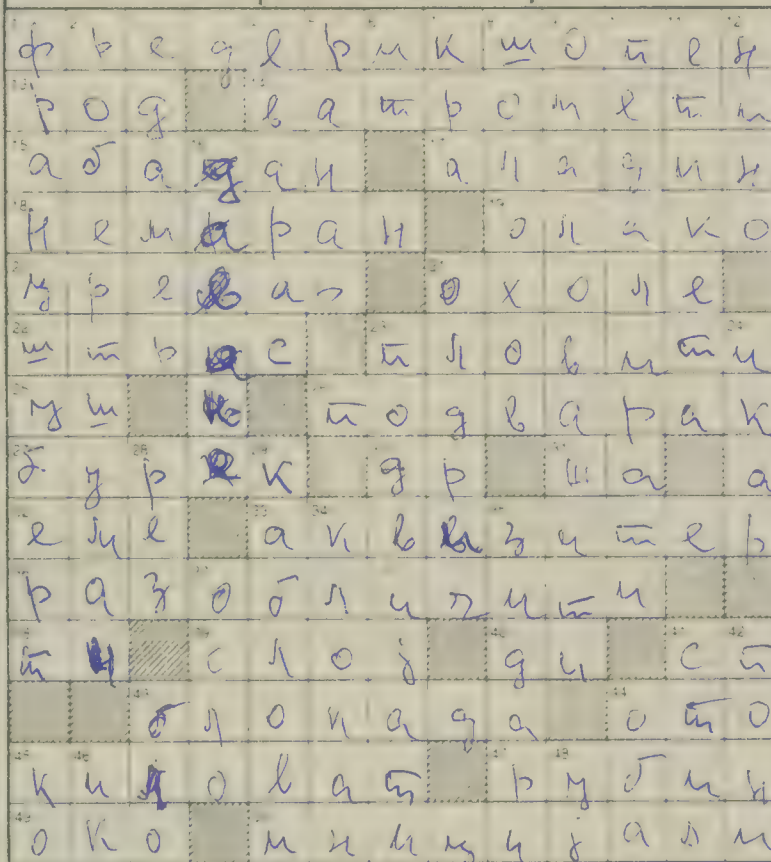 фредерик шопен
род ватромети
абадан аладин
немаран олако
охоле
штрас пловити
уш к подварак
бурек др ша а
еме аквизитер
разобличити
тн слој ди сп
блокада ото
киловат рубин
око иницијали